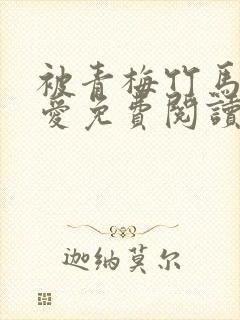 被青梅竹馬
愛免費閱讀
迦纳莫尔